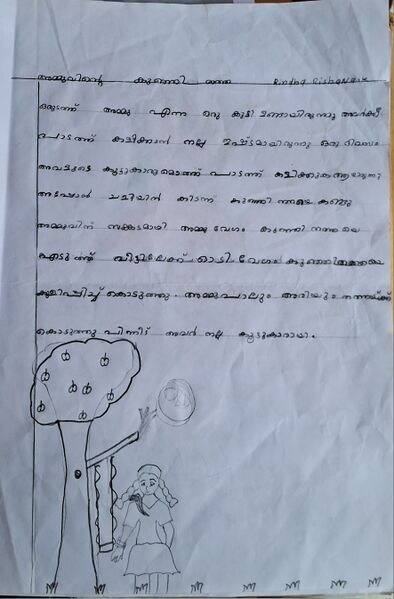 അമ്മുവിന്റെ കുഞ്ഞി തത്ത Rindha Rishana
ഒരുടത്ത് അമ്മു എന്ന ഒരു കുട്ടി ഉണായിരുന്നു അവർക്ക്
പാടത്ത് കളിക്കാൻ നല്ല ഇഷ്ടമായിരുന്നു ഒരു ദിവസം
അവളുടെ കൂട്ടുകാരുമൊത്ത് പാടത്ത് കളിക്കുക ആയിരുന്നു
അപ്പോൾ ചളിയിൽ കിടന്ന് കുഞ്ഞി തത്തയെ കണ്ടു
അമ്മുവിന് സങ്കടമായി അമ്മു വേഗം കുഞ്ഞി തത്ത യെ
എടുത്ത് വീട്ടിലേക്ക് ഓടി വേഗം കുഞ്ഞിതത്തയെ
കുളിപ്പിച്ച് കൊടുത്തു. അമ്മു പാലും അരിയും തത്തയ്ക്ക്
കൊടുത്തു പിന്നീട് അവർ നല്ല കൂട്ടുകാരായി.